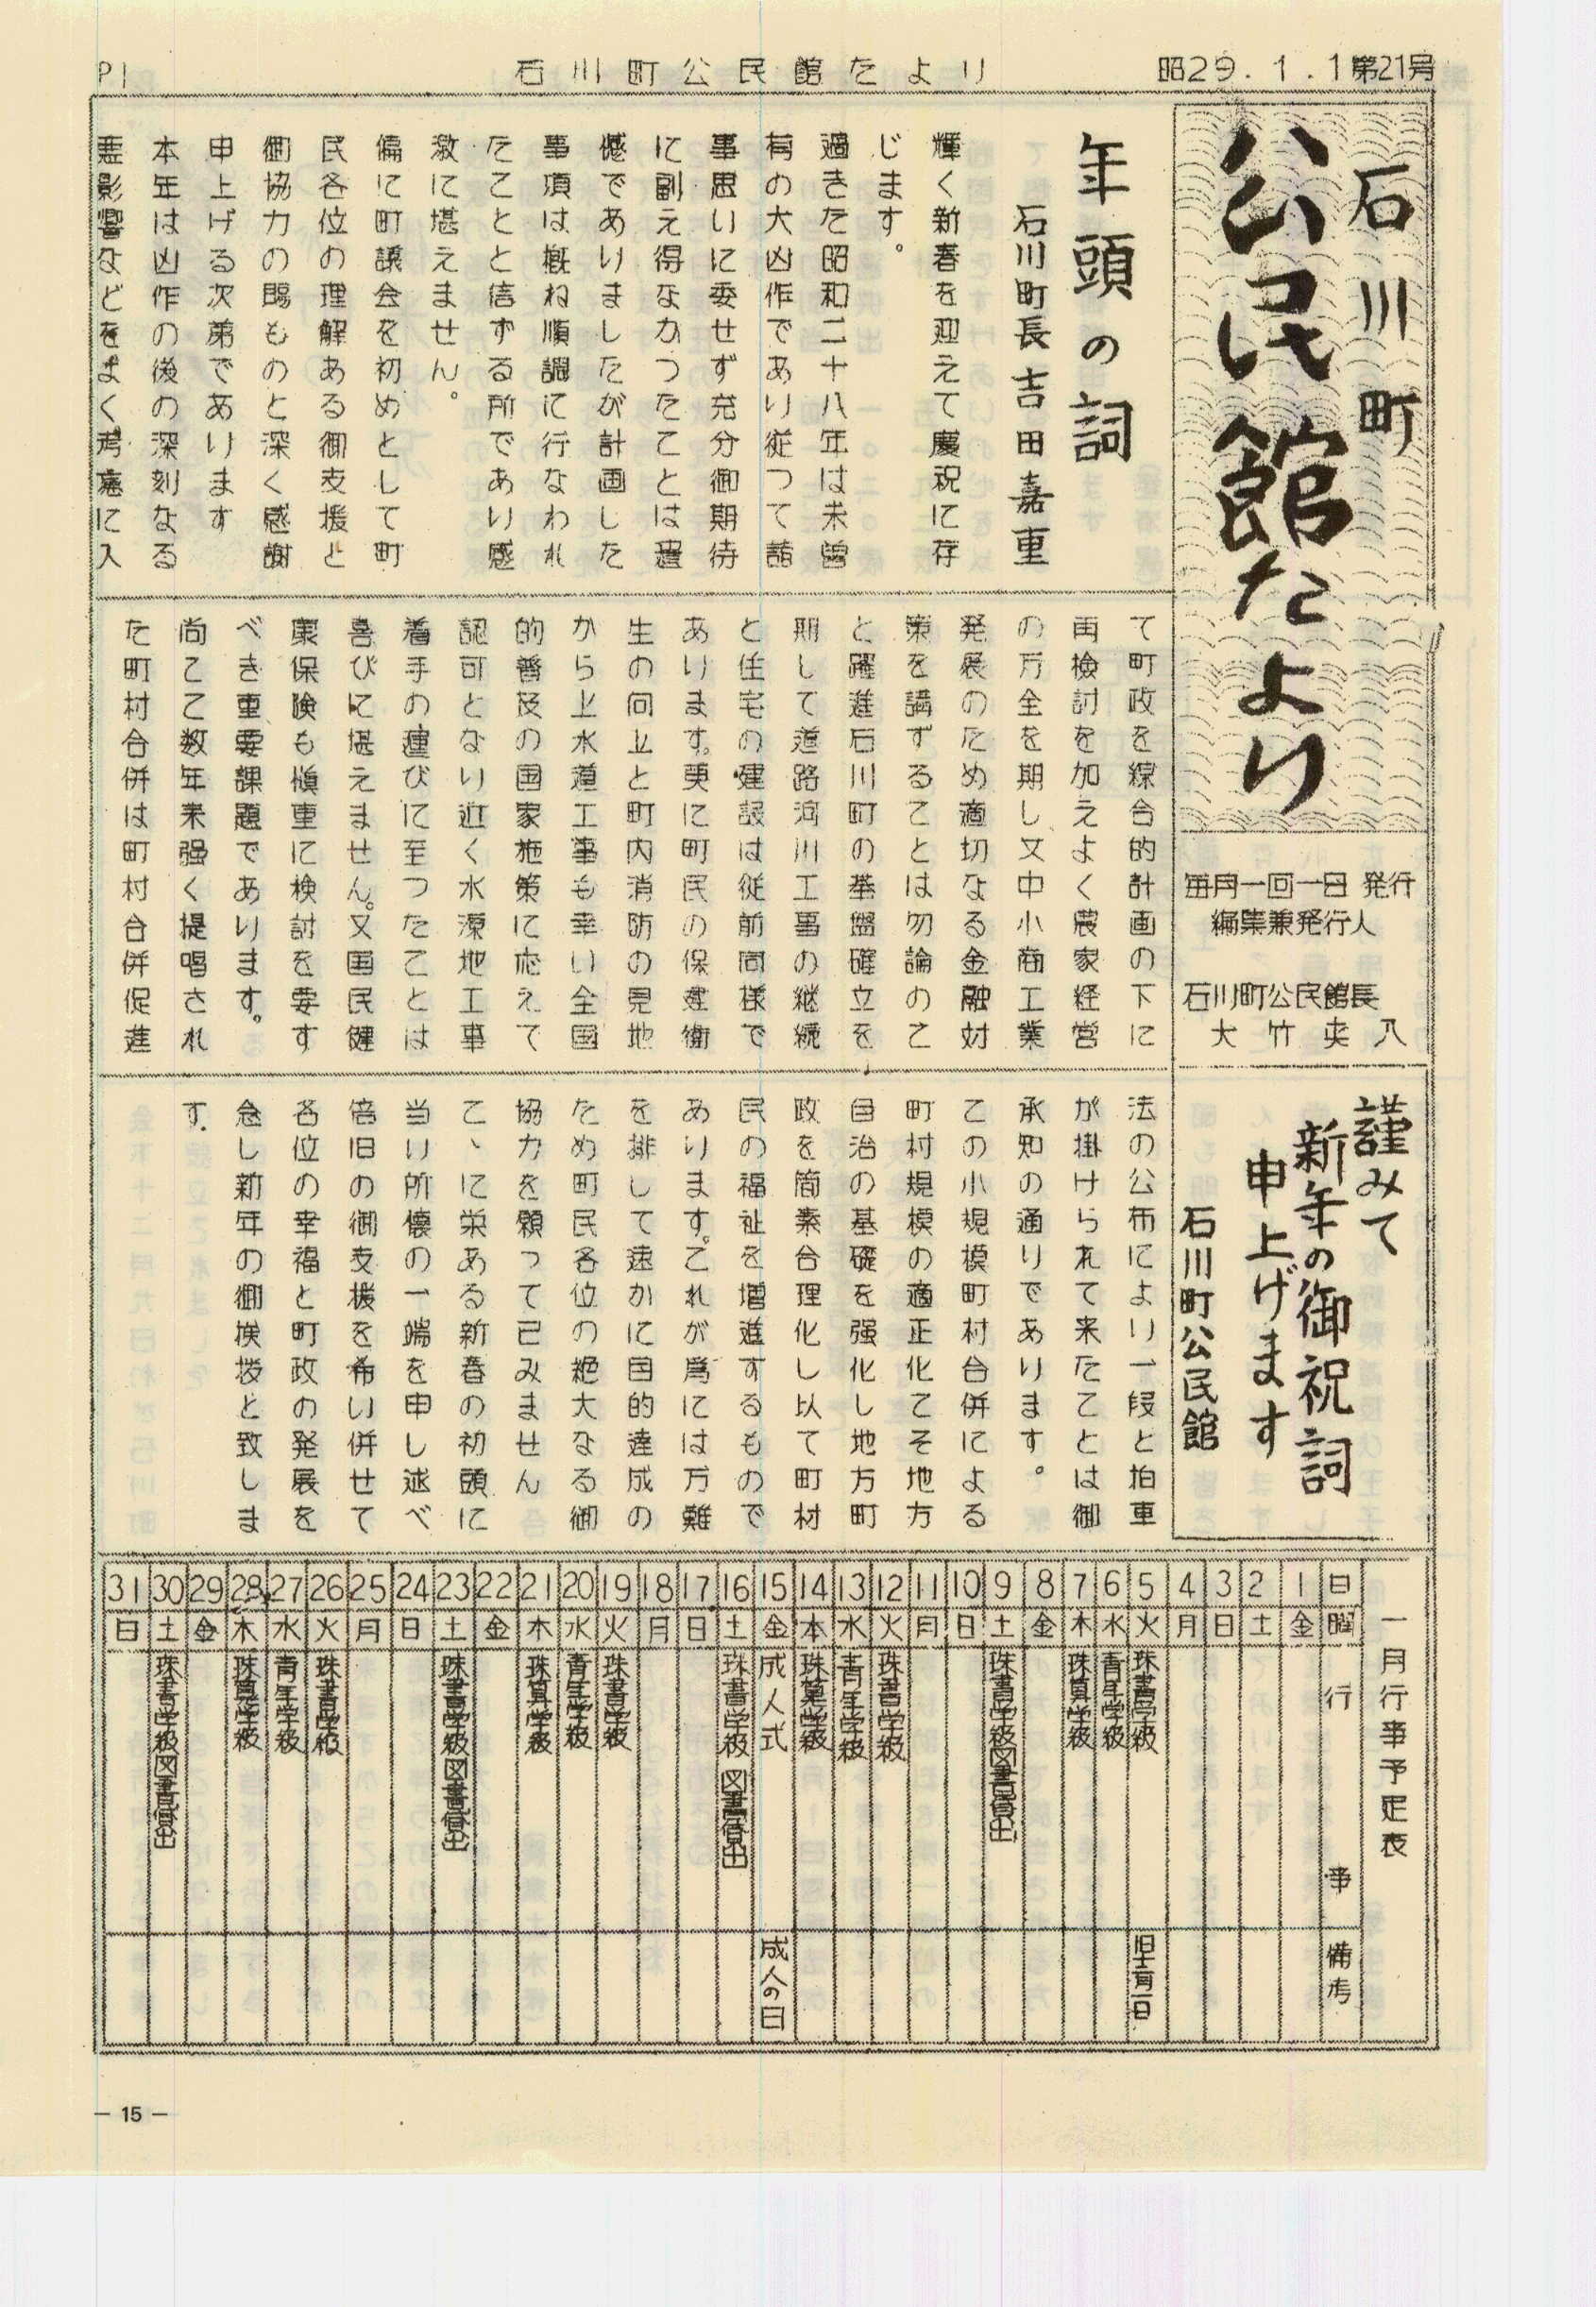 P1
石川町公民館たより
昭29.1.1第21号
石川町
公民館たより
毎月一回一日 発行
編集兼発行人
石川町公民館長
大竹
謹みて
新年の御祝詞
申上げます
石川町公民館
年頭の詞
石川町長吉田嘉重
輝く新春を迎えて慶祝に存
じます。
過きた昭和二十八年は未曽
有の大凶作であり従つて諸
事思いに委せず充分御期待
に副え得なかつたことは遺
憾でありましたが計画した
事項は概ね順調に行なわれ
たことと信ずる所であり感
激に堪えません。
偏に町議会を初めとして町
民各位の理解ある御支援と
御協力の賜ものと深く感謝
申上げる次第であります
本年は凶作の後の深刻なる
悪影響などをよく考慮に入
て町政を綜合的計画の下に
再検討を加えよく農家経営
の万全を期し又中小商工業
発展のため適切なる金融対
策を講ずることは勿論のこ
と躍進石川町の基盤確立を
期して道路河川工事の継続
と住宅の建設は従前同様で
あります。更に町民の保健衛
生の向上と町内消防の見地
から上水道工事も幸い全国
的普及の国家施策に応えて
認可となり近く水源地工事
着手の運びに至つたことは
喜びに堪えません。又国民健
康保険も慎重に検討を要す
べき重要課題であります。
尚ここ数年来强く提唱され
た町村合併は町村合併促進
法の公布により一段と拍車
が掛けられて来たことは御
承知の通りであります。
この小規模町村合併による
町村規模の適正化こそ地方
自治の基礎を强化し地方町
政を簡素合理化し以て町村
民の福祉を増進するもので
あります。これが為には万難
を排して速かに目的達成の
ため町民各位の絶大なる御
協力を願って已みません
こゝに栄ある新春の初頭に
当り所懐の一端を申し述べ
倍旧の御支援を希い併せて
各位の幸福と町政の発展を
念し新年の御挨拶と致しま
す.
一月行事予定表
日 曜 行 事 備考
1 金
2 土
3 日
4 月
5 火 珠書学級 旧十二月一日
6 水 青年学級
7 木 珠算学級
8 金
9 土 珠書学級図書貸出
10 日
11 月
12 火 珠書学級
13 水 青年学級
14 木 珠算学級
15 金 成人式 成人の日
16 土 珠書学級 図書貸出
17 日
18 月
19 火 珠書学級
20 水 青年学級
21 木 珠算学級
22 金
23 土 珠書学級図書貸出
24 日
25 月
26 火 珠書学級
27 水 青年学級
28 木 珠算学級
29 金
30 土 珠書学級図書貸出
31 日
— 15 —